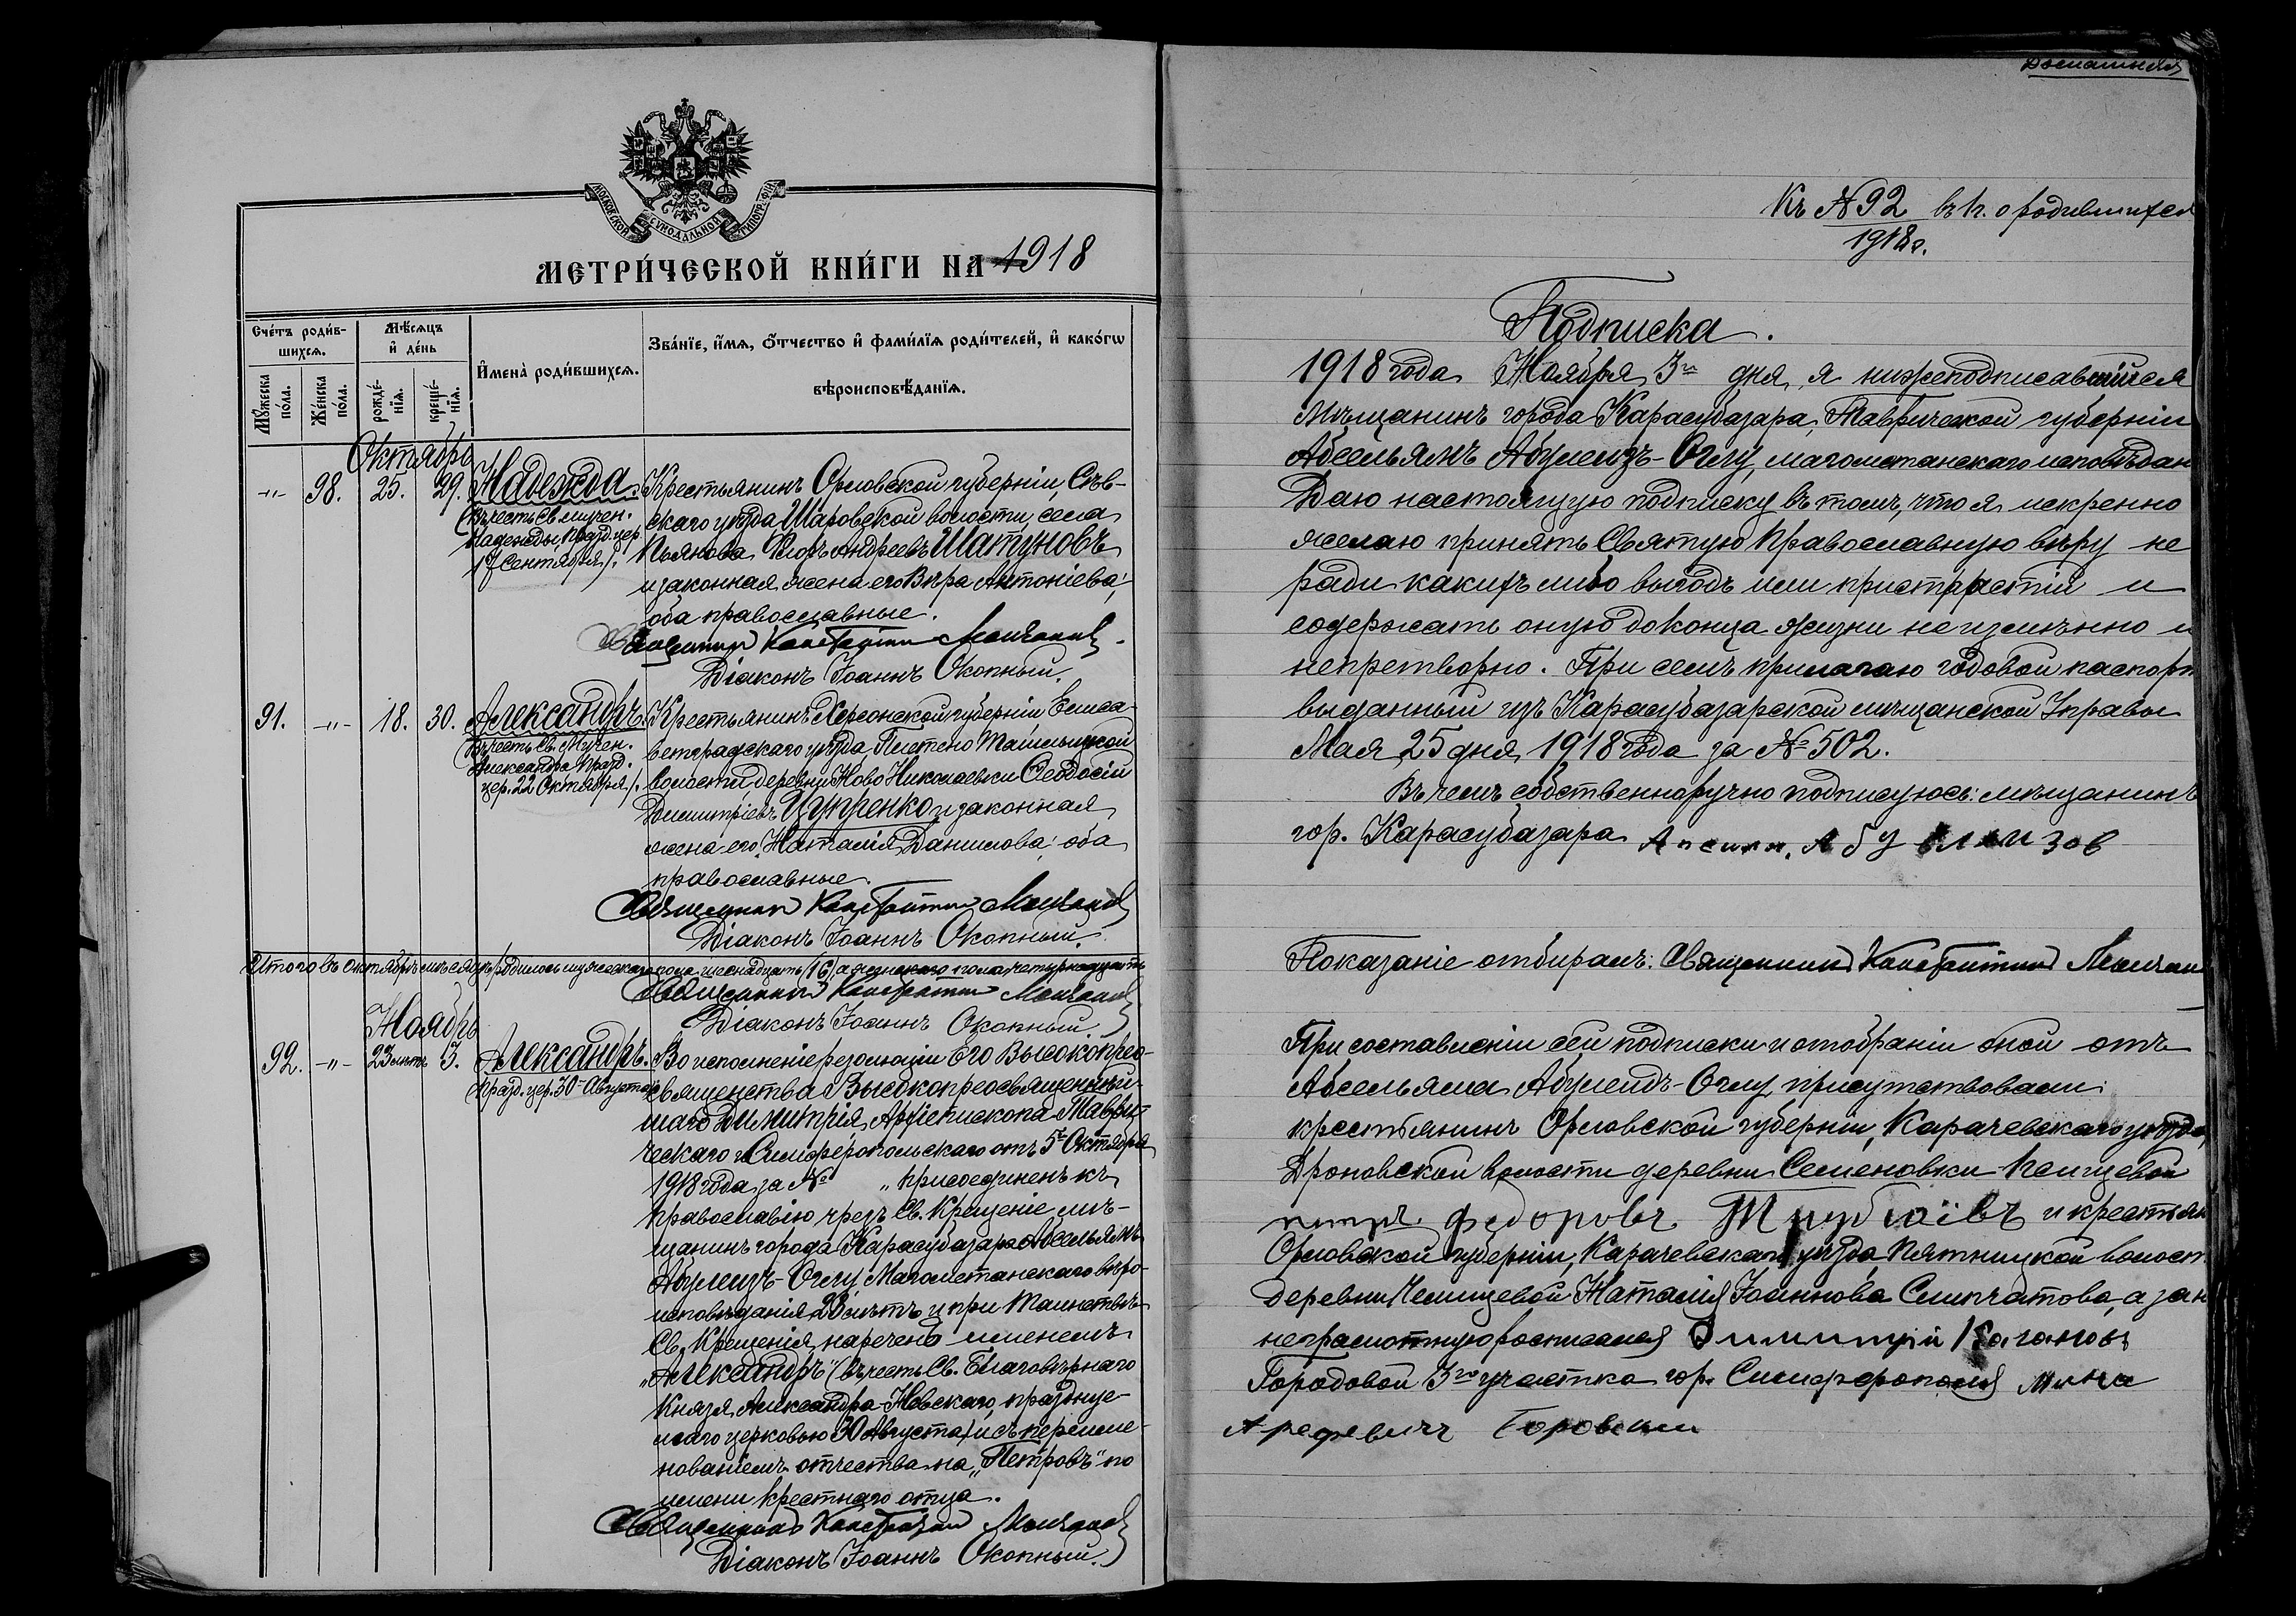 МОСКОВСКОЙ СѴНОДАЛЬНОЙ ТИПОГРАФІИ
МЕТРИ́ЧЕСКОЙ КНИ́ГИ НА 1918
Сче́тъ роди́в-
шихсѧ.
Мѣ́сѧцъ
и҆ де́нь
И҆мена̀ роди́вшихсѧ.
Зва́нїе, и҆́мѧ, ѻ҆́тчество и҆ фами́лїѧ роди́телей, и҆ како́гѡ
вѣроисповѣ́данїѧ.
Мꙋ́жеска по́ла.
Же́нска по́ла.
рожде́-нїѧ.
креще́-нїѧ.
Октябрь
-"- 98. 25. 29. Надежда.
(Въ честь Св. мучен.
Надежды, празд. цер.
17 Сентября).
Крестьянинъ Орловской губерніи, Сѣв-
скаго уѣзда Шаровской волости, села
Пьянова Андреевъ Шатуновъ
и законная жена его Вѣра Антоніева;
оба православные.
Священникъ Константинъ Молчановъ
Діаконъ Іоаннъ Окопный.
91. -"- 18. 30. Александръ.
(Въ честь Св. Мучен.
Александра празд.
цер. 22 Октября).
Крестьянинъ Херсонской губерніи Елиса-
ветградскаго уѣзда Плетено Ташлыцкой
волости, деревни Ново Николаевки Ѳеодосій
Димитріевъ и законная
жена его Наталія Данилова; оба
православные.
Священникъ Константинъ Молчановъ
Діаконъ Іоаннъ Окопный.
Итого въ октябрѣ мѣсяцѣ родилось мужескаго пола шеснадцать (16), а женскаго пола четырнадцать
Священникъ Константинъ Молчановъ
Діаконъ Іоаннъ Окопный.
Ноябрь
92. -"- 23 лѣтъ 3. Александръ.
Празд. цер. 30 Августа
Во исполненіе резолюціи Его Высокопрео-
священства Высокопреосвященнѣй-
шаго Димитрія, Архіепископа Таври-
ческаго и Симферопольскаго отъ 5 Октября
1918 года за № " присоединенъ къ
православію чрезъ Св. Крещеніе мѣ-
щанинъ города Карасубазара Абсельямъ
Абулеизъ-Оглу, Магометанскаго вѣро-
исповѣданія, лѣтъ и при Таинствѣ
Св. Крещенія, нареченъ именемъ
„Александръ" (въ честь Св. Благовѣрнаго
Князя Александра-Невскаго, праздну-
емаго церковью 30 Августа) и съ переиме-
нованіемъ отчества на „Петровъ" по
имени крестнаго отца.
Священникъ Константинъ Молчановъ
Діаконъ Іоаннъ Окопный.
Къ № 92 въ к. о родившихся
1918 г.
Подписка.
1918 года Ноября 3го дня, я нижеподписавшійся
Мѣщанинъ города Карасубазара, Таврической губерніи
Абсельямъ Абулеизъ-Оглу, магометанскаго исповѣдан
Даю настоящую подписку въ томъ, что я искренно
желаю принять Святую Православную вѣру не
ради какихъ либо выгодъ или пристрастій и
содержать оную до конца жизни неизмѣнно и
непретворно. При семъ прилагаю годовой паспорт
выданный изъ Карасубазарской мѣщанской Управы
Мая 25 дня 1918 года за № 502.
Въ чемъ собственноручно подписуюсь: мѣщанинъ
гор. Карасубазара
Показаніе отбиралъ: Священникъ Константинъ Молчан
При составленіи сей подписки и отобраніи оной отъ
Абсельяма Абулеизъ-Оглу присутствовали:
крестьянинъ Орловской губерніи, Карачевскаго уѣзда,
Дроновской волости деревни Семеновки
Петръ Федоровъ и крестьян
Орловской губерніи, Карачевскаго уѣзда Пятницкой волост
деревни Наталія Іоаннова а за н
неграмотную росписался Димитрій
Городовой 3го участка гор. Симферополя